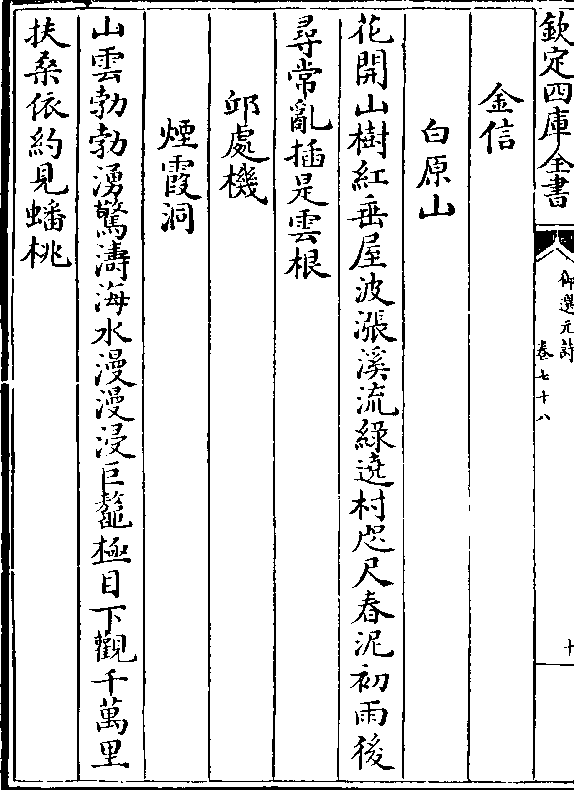 欽定四庫全書
御選元詩
卷七十八
十
金信
白原山
花開山樹紅垂屋波漲溪流綠遶村咫尺春泥初雨後
尋常亂插是雲根
邱處機
煙霞洞
山雲勃勃湧驚濤海水漫漫浸巨鼇極目下觀千萬里
扶桑依約見蟠桃